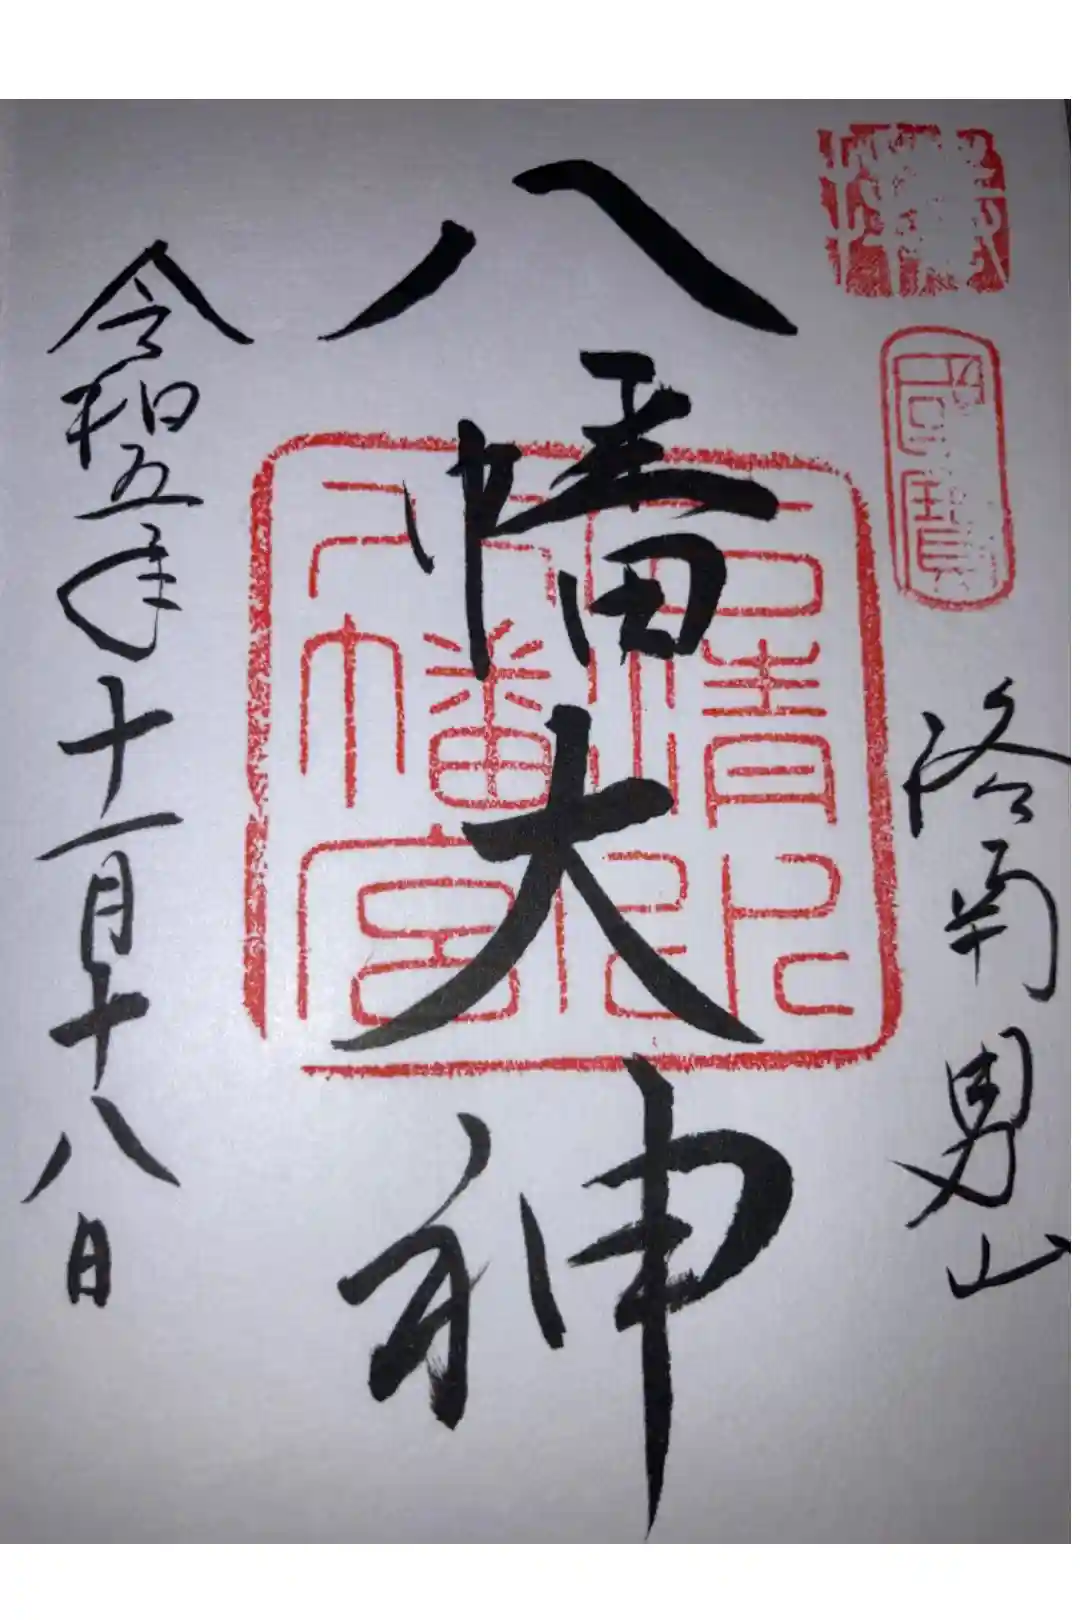 國寳
洛南男山
八幡大神
八幡宮
令和五年十一月十八日